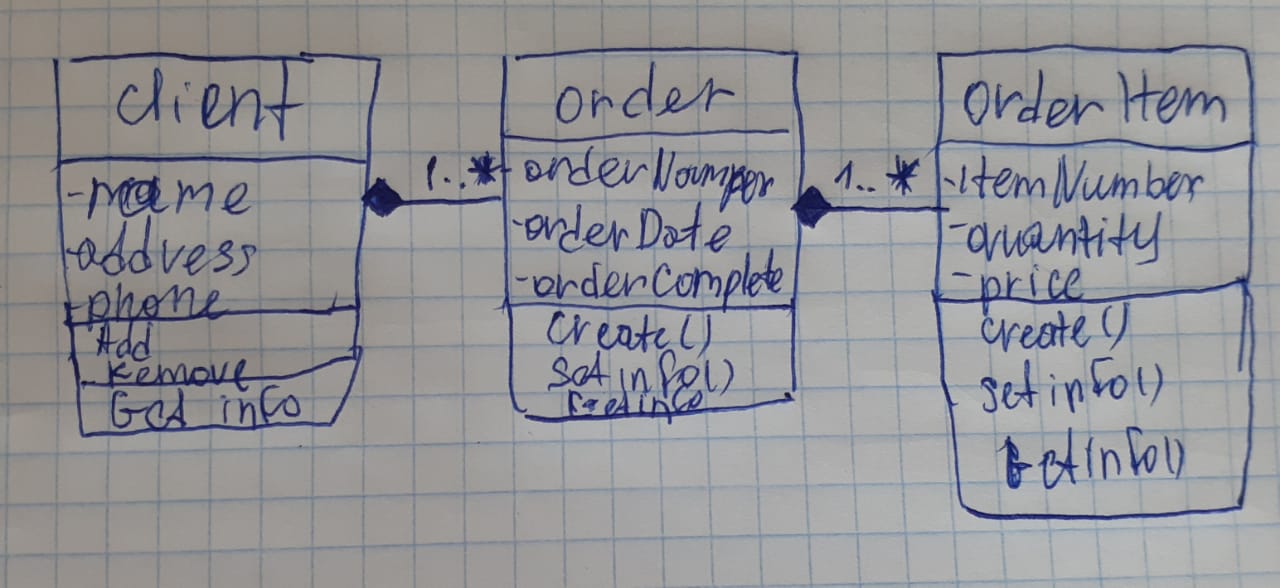 client
-name
-address
-phone
Add
Remove
Get info
1..*
order
-orderNumper
-orderDate
-orderComplete
create()
Set info()
Getinfo
1..*
order Item
-ItemNumber
-quantity
-price
create()
setinfo()
Getinfo()